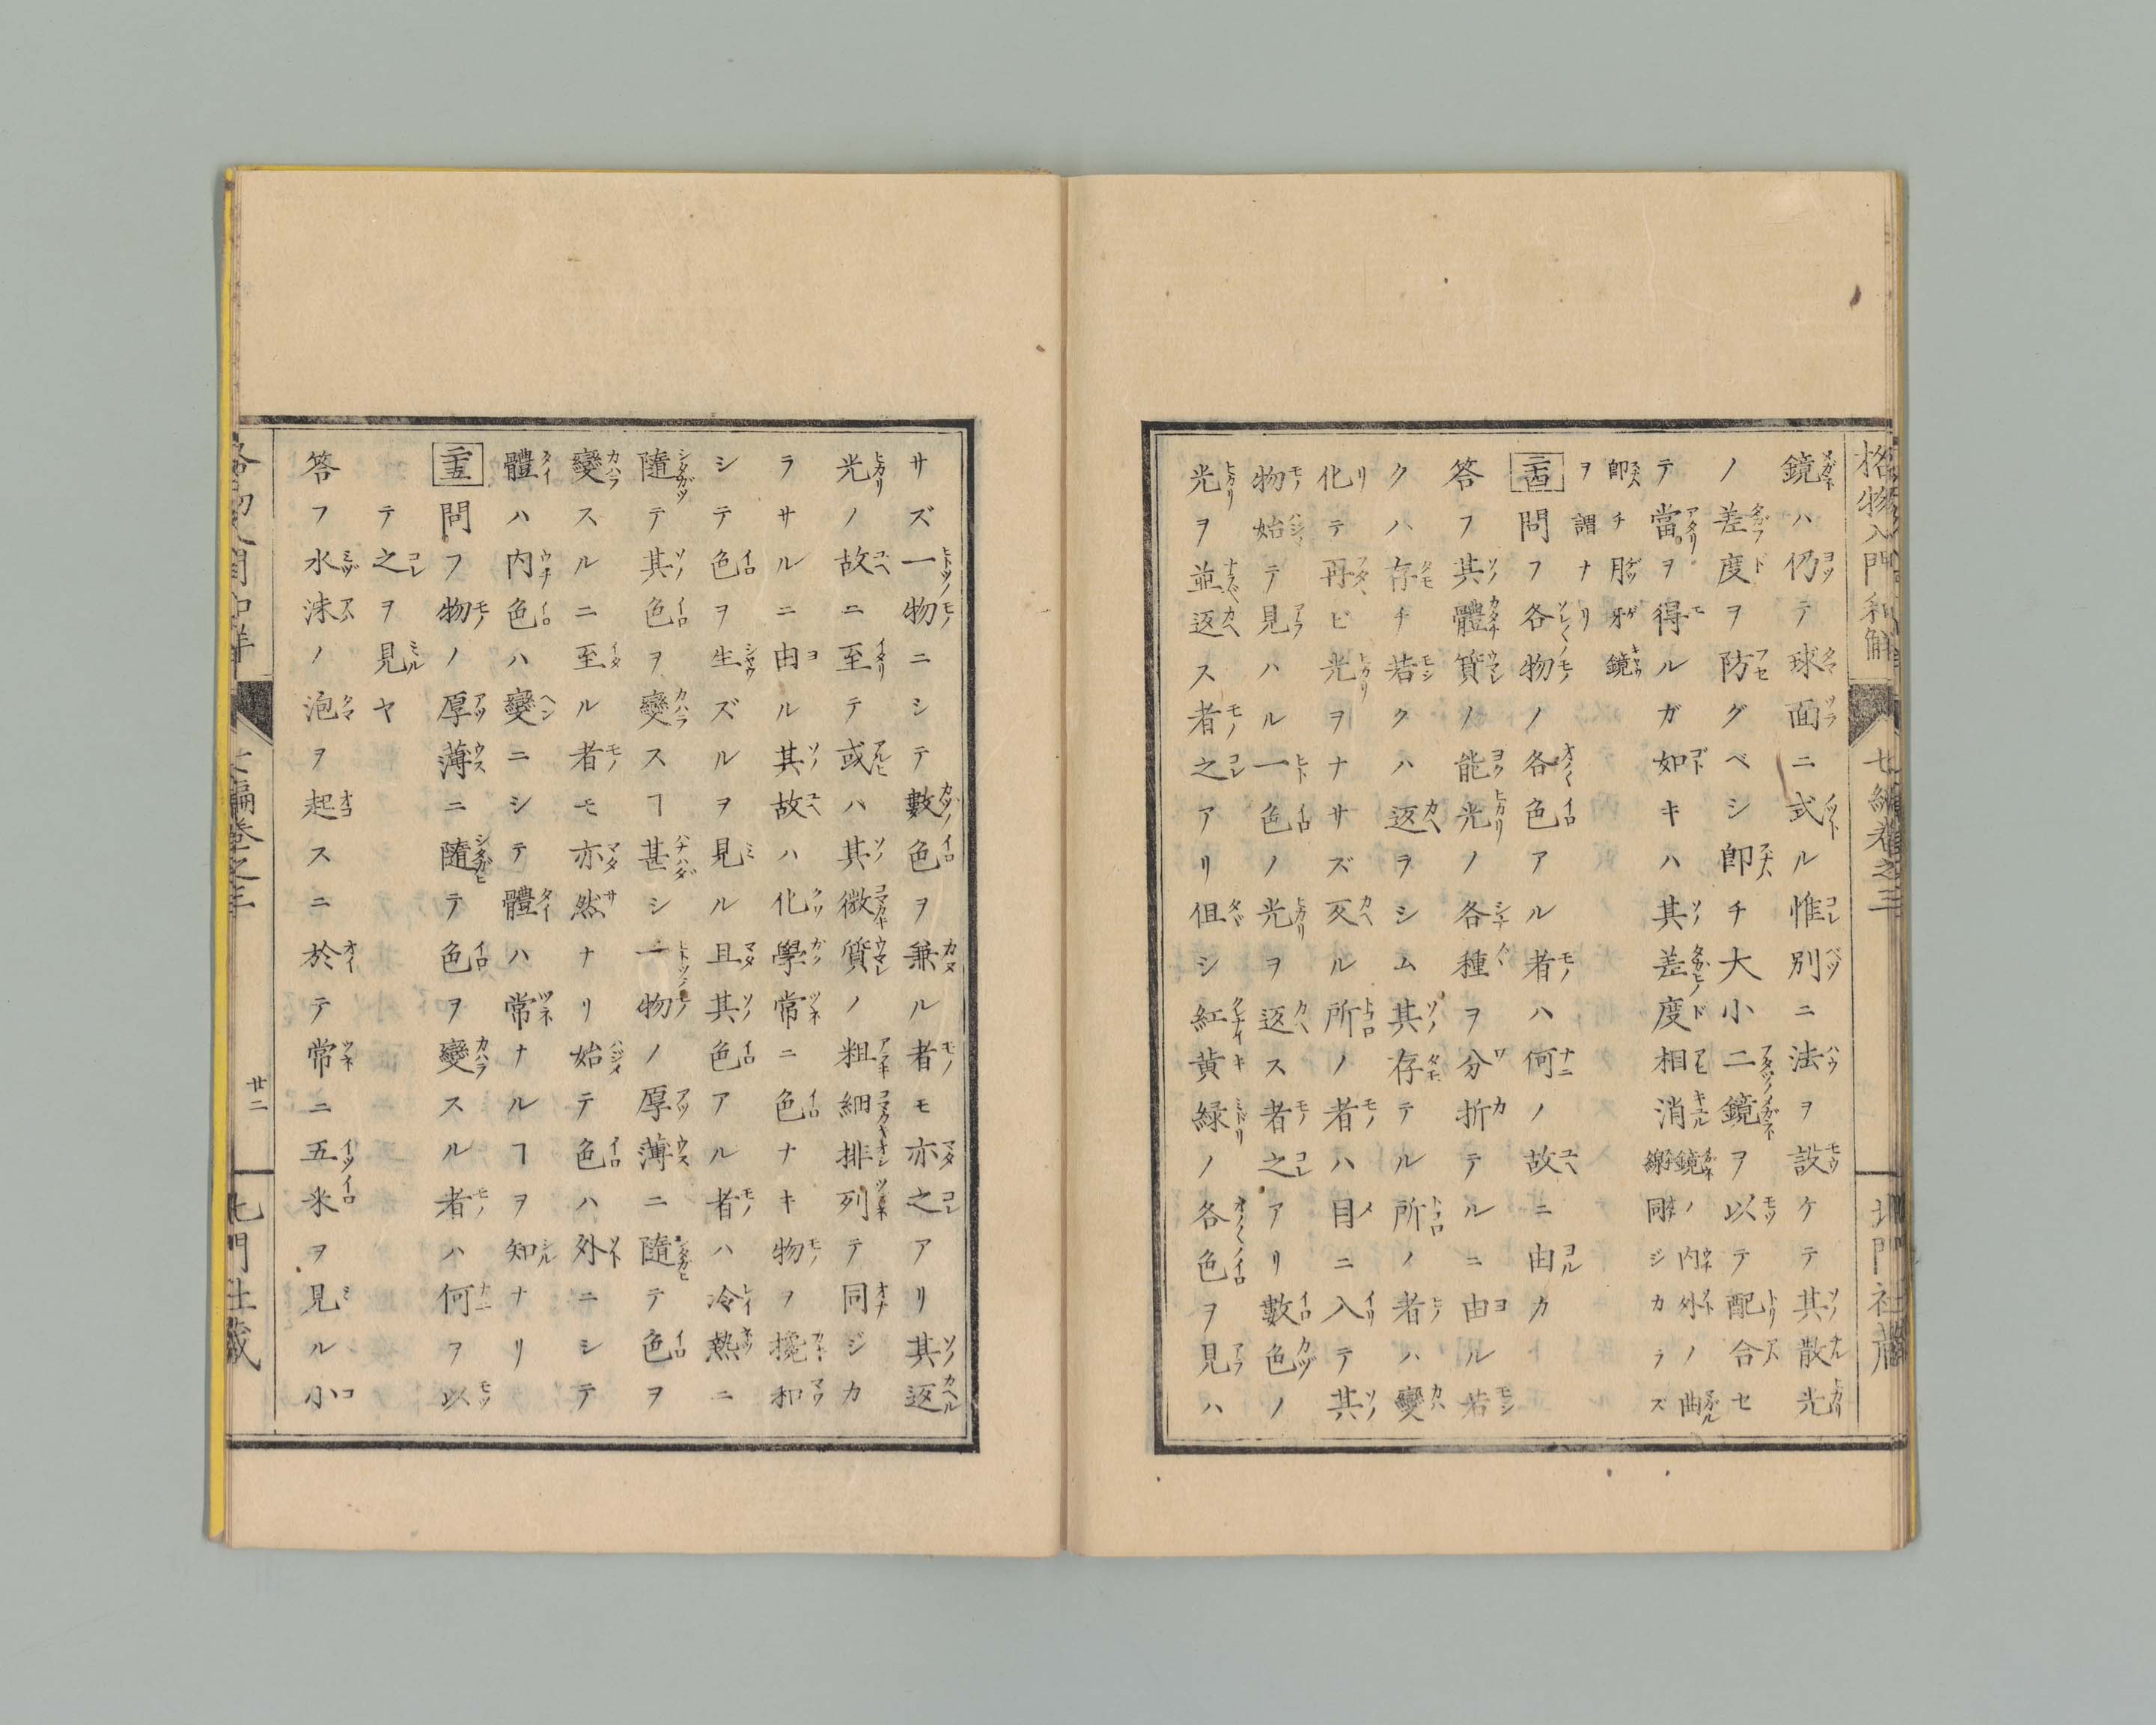 格物入門和解 七編卷之三 北門社蔵
鏡ハ仍テ球面ニ式ル惟別ニ法ヲ設ケテ其散光
ノ差度ヲ防グベシ卽チ大小二鏡ヲ以テ配合セ
テ當ヲ得ルガ如キハ其差度相消鏡ノ內外ノ曲線同ジカラズ
卽チ月牙鏡
ヲ謂ナリ
二百四 問フ各物ノ各色アル者ハ何ノ故ニ由カ
答フ其體質ノ能光ノ各種ヲ分折テルニ由ル若
クハ存チ若クハ返ラシム其存テル所ノ者ハ變
化テ再ビ光ヲナサズ反ル所ノ者ハ目ニ入テ其
物始テ見ハル一色ノ光ヲ返ス者之アリ數色ノ
光ヲ並返ス者之アリ但シ紅黃綠ノ各色ヲ見ハ
サズ一物ニシテ數色ヲ兼ル者モ亦之アリ其返
光ノ故ニ至テ或ハ其微質ノ粗細排列テ同ジカ
ラサルニ由ル其故ハ化學常ニ色ナキ物ヲ攙和
シテ色ヲ生ズルヲ見ル且其色アル者ハ冷熱ニ
隨テ其色ヲ變スヿ甚シ一物ノ厚薄ニ隨テ色ヲ
變スルニ至ル者モ亦然ナリ始テ色ハ外ニシテ
體ハ內色ハ變ニシテ體ハ常ナルヿヲ知ナリ
二百五 問フ物ノ厚薄ニ隨テ色ヲ變スル者ハ何ヲ以
テ之ヲ見ヤ
答フ水沫ノ泡ヲ起スニ於テ常ニ五釆ヲ見ル小
七編卷之三 廿二 北門社蔵